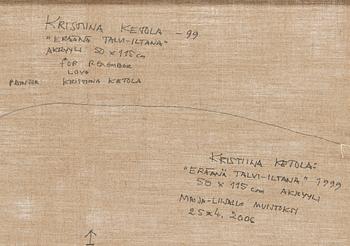 KRISTIINA KETOLA -99
"ERÄÄNÄ TALVI-ILTANA"
AKRYYLI 50 x 115 cm
FOR REMEMBER
LOVE
PAINTER KRISTIINA KETOLA
KRISTIINA KETOLA:
"ERÄÄNÄ TALVI-ILTANA" 1999
50 x 115 cm AKRYYLI
MAIJA-LIISALLE MUISTOKSI
25 x 4. 2006